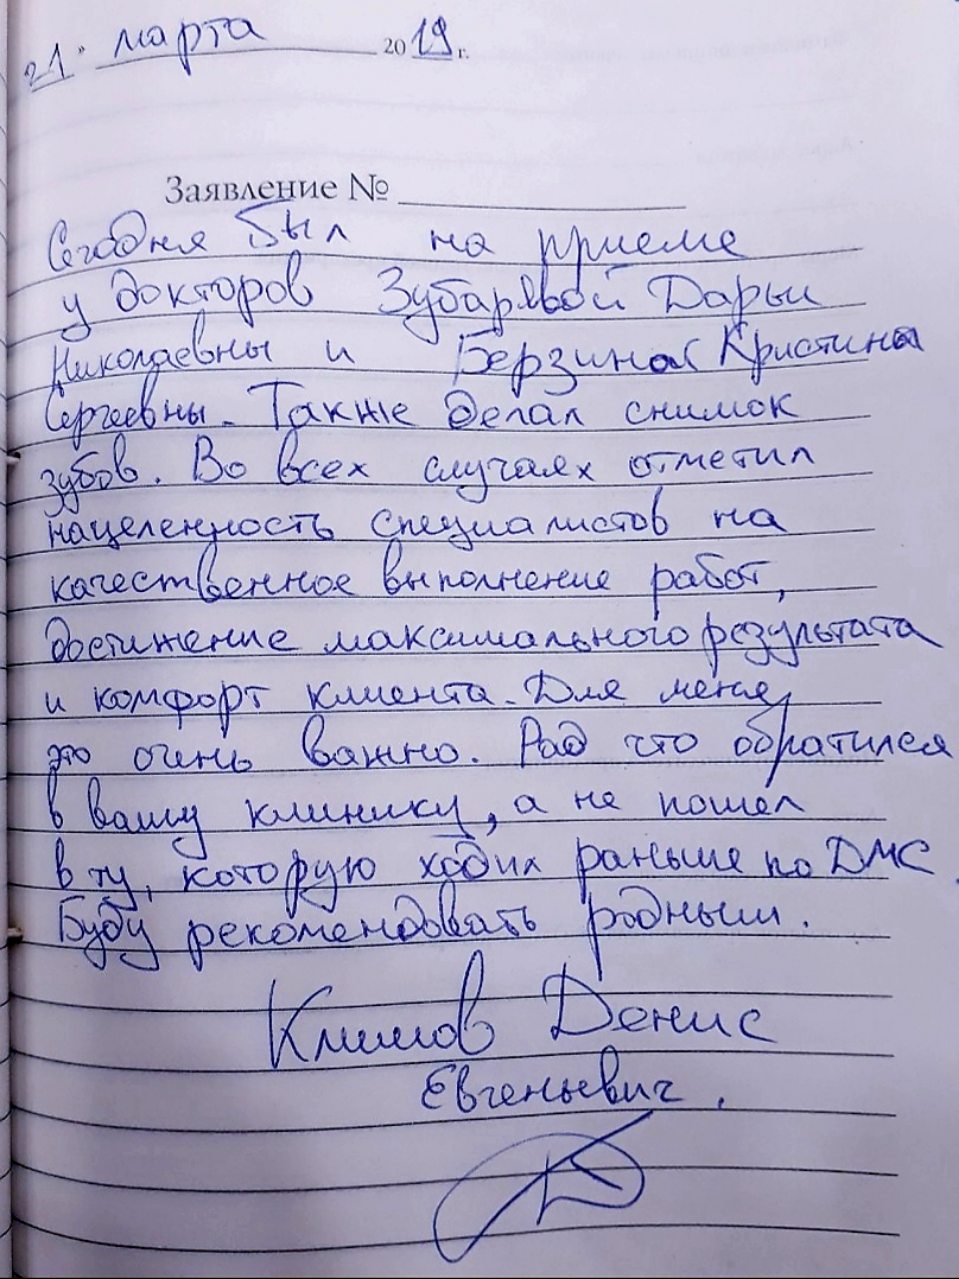 21. марта 2019 г.
Заявление №
Сегодня был на приеме
у докторов Зубаревой Дарьи
Николаевны и Берзиной Кристины
Сергеевны. Также делал снимок
зубов. Во всех случаях отметил
нацеленность специалистов на
качественное выполнение работ,
достижение максимального результата
и комфорт клиента. Для меня
это очень важно. Рад что обратился
в вашу клинику, а не пошел
в ту, которую ходил раньше по ДМС.
Буду рекомендовать родным.
Климов Денис
Евгеньевич.